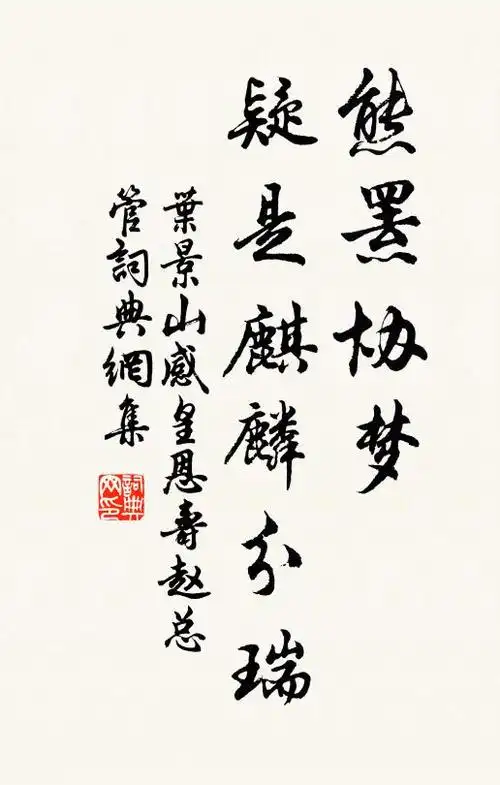 熊罴协梦
疑是麒麟分瑞
葉景山感皇恩壽赵总
管詞典網集
詞典网印